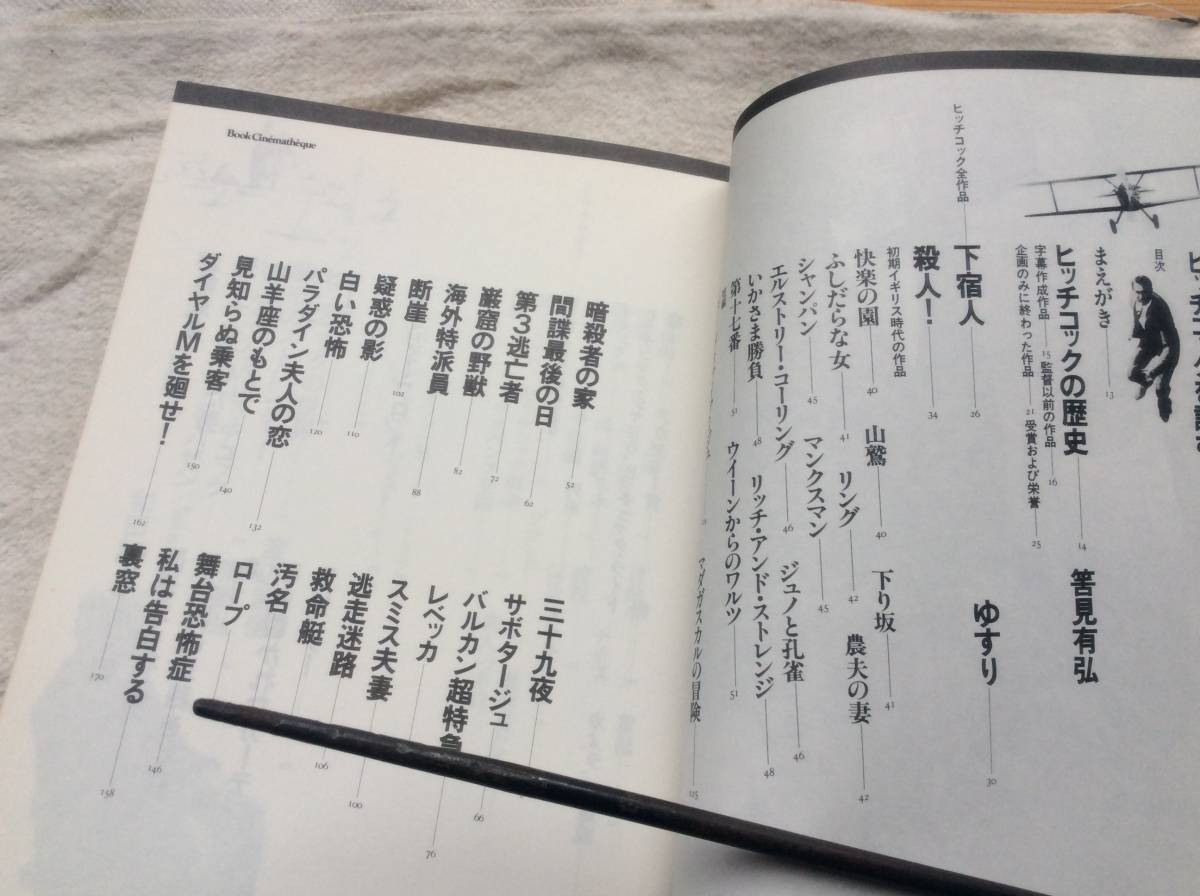 目次
まえがき 13
ヒッチコックの歴史 14 筈見有弘
字幕作成作品 15 監督以前の作品 16
企画のみに終わった作品 21 受賞および栄誉 25
ヒッチコック全作品
下宿人 26 ゆすり 30
殺人! 34
初期イギリス時代の作品
快楽の園 40 山鷲 40 下り坂 41
ふしだらな女 41 リング 42 農夫の妻 42
シャンパン 45 マンクスマン 45
エルストリー・コーリング 46 ジュノと孔雀 46
いかさま勝負 48 リッチ・アンド・ストレンジ 48
第十七番 51 ウイーンからのワルツ 51
マダガスカルの冒険 115
Book Cinémathèque
暗殺者の家 52 三十九夜
間諜最後の日 62 サボタージュ 66
第3逃亡者 72 バルカン超特急 76
巌窟の野獣 82 レベッカ
海外特派員 88 スミス夫妻
断崖 102 逃走迷路 100
疑惑の影 110 救命艇 106
白い恐怖 120 汚名
パラダイン夫人の恋 132 ロープ
山羊座のもとで 140 舞台恐怖症 146
見知らぬ乗客 150 私は告白する 158
ダイヤルMを廻せ! 162 裏窓 170